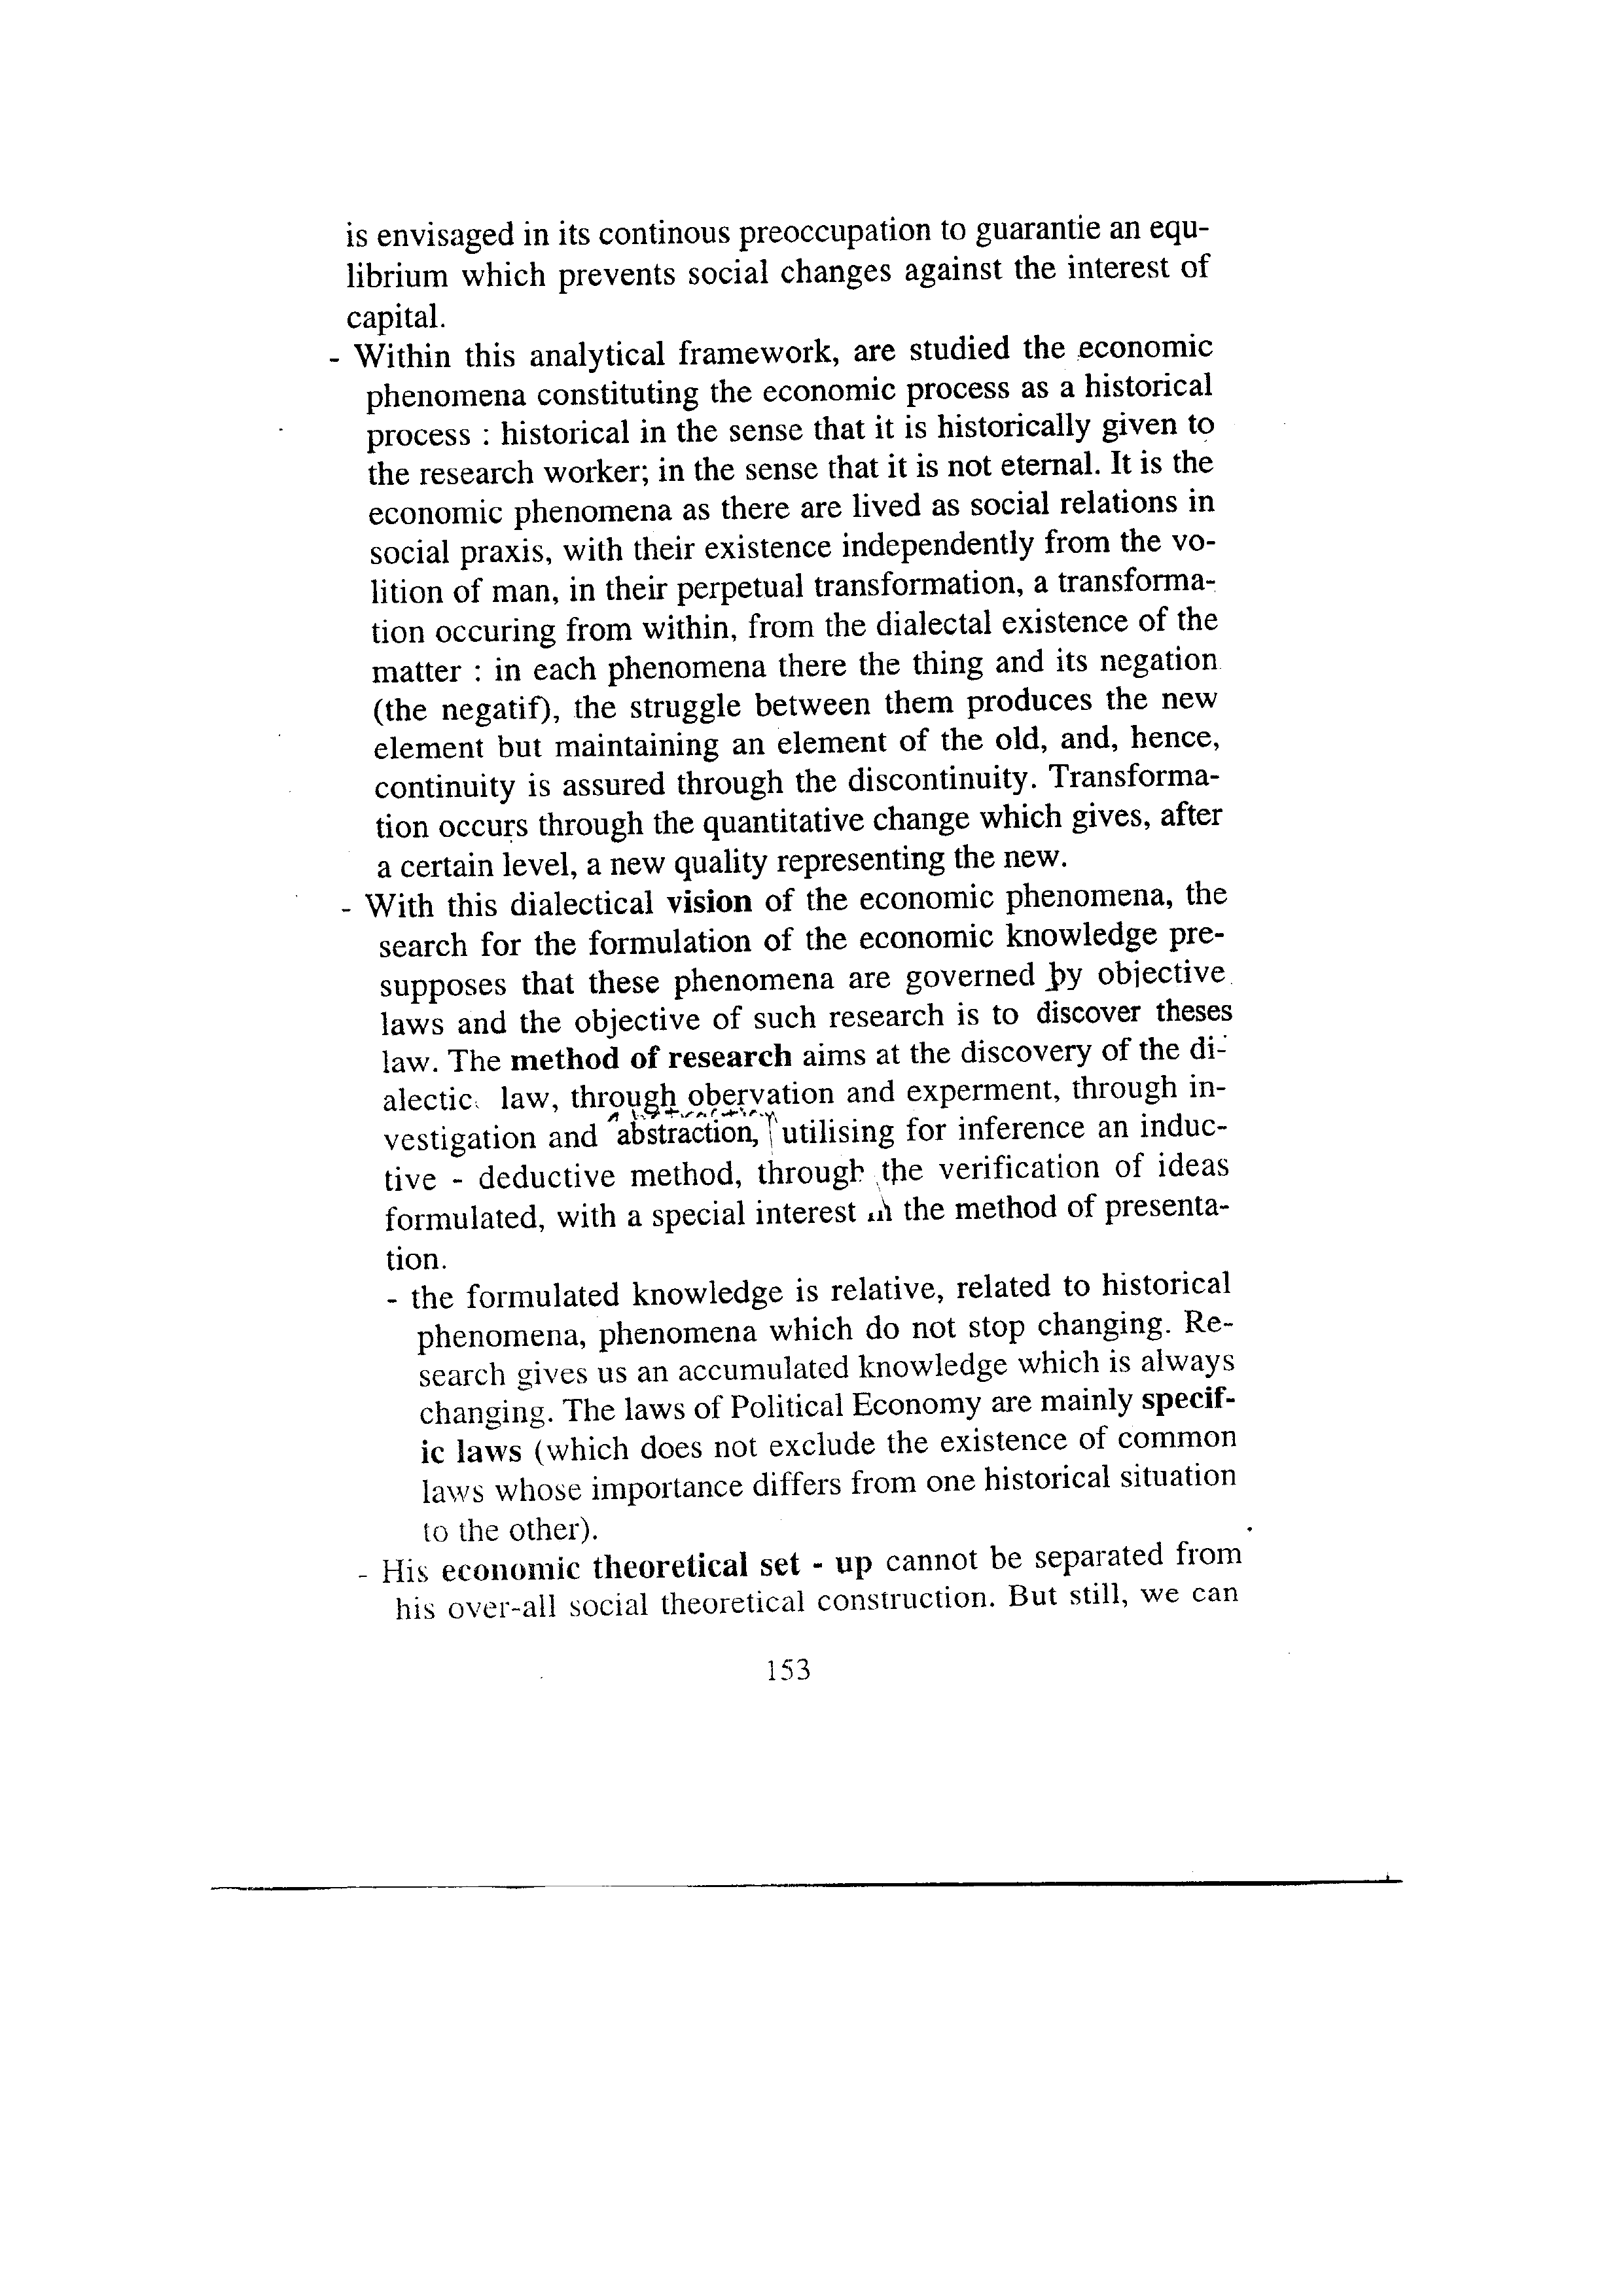 is envisaged in its continous preoccupation to guarantie an equ-
librium which prevents social changes against the interest of
capital.
- Within this analytical framework, are studied the economic
phenomena constituting the economic process as a historical
process : historical in the sense that it is historically given to
the research worker; in the sense that it is not eternal. It is the
economic phenomena as there are lived as social relations in
social praxis, with their existence independently from the vo-
lition of man, in their perpetual transformation, a transforma-
tion occuring from within, from the dialectal existence of the
matter : in each phenomena there the thing and its negation
(the negatif), the struggle between them produces the new
element but maintaining an element of the old, and, hence,
continuity is assured through the discontinuity. Transforma-
tion occurs through the quantitative change which gives, after
a certain level, a new quality representing the new.
- With this dialectical vision of the economic phenomena, the
search for the formulation of the economic knowledge pre-
supposes that these phenomena are governed by objective
laws and the objective of such research is to discover theses
law. The method of research aims at the discovery of the di-
alectic law, through obervation and experment, through in-
abstraction
vestigation and abstraction, utilising for inference an induc-
tive - deductive method, through the verification of ideas
formulated, with a special interest in the method of presenta-
tion.
- the formulated knowledge is relative, related to historical
phenomena, phenomena which do not stop changing. Re-
search gives us an accumulated knowledge which is always
changing. The laws of Political Economy are mainly specif-
ic laws (which does not exclude the existence of common
laws whose importance differs from one historical situation
to the other).
- His economic theoretical set - up cannot be separated from
his over-all social theoretical construction. But still, we can
153